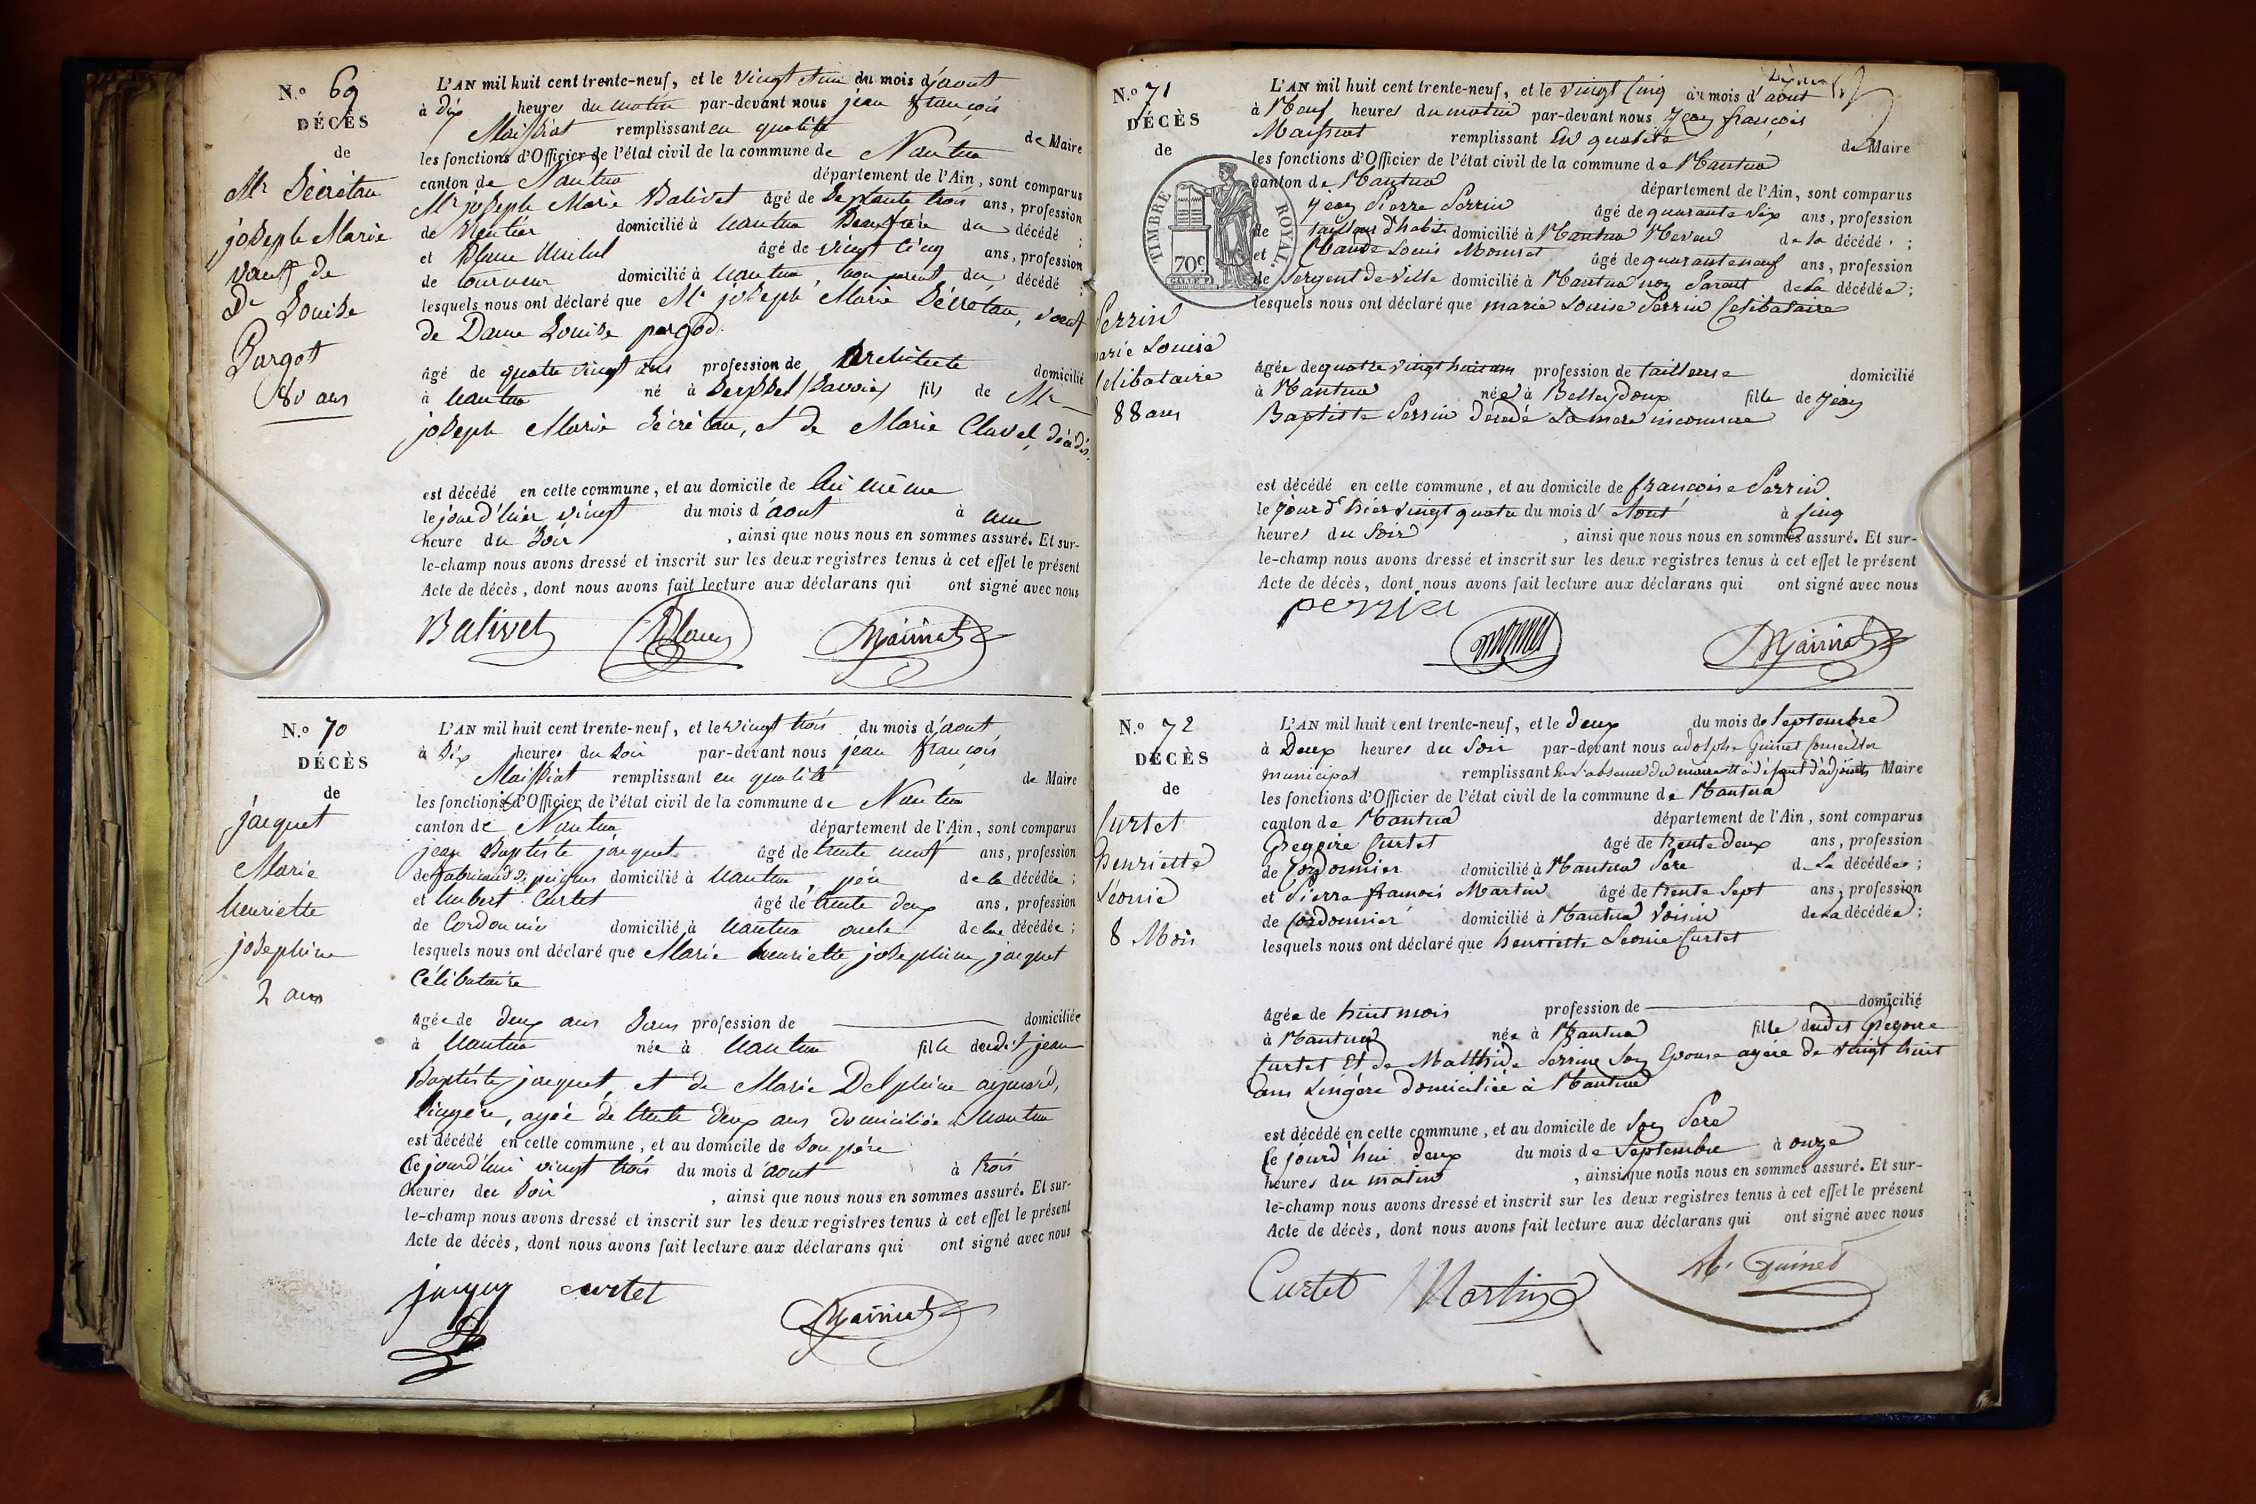 N.° 69
DÉCÈS
de
Mr Décrétau
joseph Marie
veuf de
De Louise
Pargot
80 ans
L'AN mil huit cent trente-neuf, et le vingt et un du mois d'aout
à Dix heures du matin par-devant nous jean françois
Maissiat remplissant en qualité de Maire
les fonctions d'Officier de l'état civil de la commune de Nantua
canton de Nantua département de l'Ain, sont comparus
Mr joseph Marie Balivet âgé de Septante trois ans, profession
de Rentier domicilié à nantua Beaufrère du décédé ;
et Blanc âgé de vingt cinq ans, profession
de tourneur domicilié à nantua, non parent du décédé ;
lesquels nous ont déclaré que Mr joseph Marie Décrétau, veuf
de Dame Louise pargod.
âgé de quatre vingt ans profession de Architecte domicilié
à nantua né à (Savoie) fils de Mr
joseph Marie Décrétau, et de Marie Clavel, décédés.
est décédé en cette commune, et au domicile de lui même
le jour d'hier vingt du mois d'aout à une
heure du Soir , ainsi que nous nous en sommes assuré. Et sur-
le-champ nous avons dressé et inscrit sur les deux registres tenus à cet effet le présent
Acte de décès, dont nous avons fait lecture aux déclarans qui ont signé avec nous
Balivet Blanc Maissiat
N.° 70
DÉCÈS
de
jacquet
Marie
henriette
josephine
2 ans
L'AN mil huit cent trente-neuf, et le vingt trois du mois d'aout
à Six heures du Soir par-devant nous jean françois
Maissiat remplissant en qualité de Maire
les fonctions d'Officier de l'état civil de la commune de Nantua
canton de Nantua département de l'Ain, sont comparus
jean Baptiste jacquet âgé de trente neuf ans, profession
de fabricand de peignes domicilié à nantua, père de la décédée ;
et humbert Curtet âgé de trente deux ans, profession
de Cordonnier domicilié à nantua oncle de la décédée ;
lesquels nous ont déclaré que Marie henriette josephine jacquet
Célibataire
âgée de deux ans Sans profession de domiciliée
à nantua née à nantua fille dudit jean
Baptiste jacquet, et de Marie Delphine aymard,
lingère, agée de trente deux ans domiciliée à nantua
est décédé en cette commune, et au domicile de Son père
Ce jourd'hui vingt trois du mois d'aout à trois
heures du Soir , ainsi que nous nous en sommes assuré. Et sur-
le-champ nous avons dressé et inscrit sur les deux registres tenus à cet effet le présent
Acte de décès, dont nous avons fait lecture aux déclarans qui ont signé avec nous
jacquet curtet Maissiat
N.° 71
DÉCÈS
de
Perrin
marie Louise
Célibataire
88 ans
TIMBRE ROYAL
70c.
L'AN mil huit cent trente-neuf, et le vingt Cinq du mois d'aout
à Neuf heures du matin par-devant nous Jean françois
Maissiat remplissant En qualité de Maire
les fonctions d'Officier de l'état civil de la commune de Nantua
canton de Nantua département de l'Ain, sont comparus
Jean Pierre Perrin âgé de quarante Six ans, profession
de tailleur d'habits domicilié à Nantua Neveu de La décédé ;
et Claude Louis Monnet âgé de quaranteneuf ans, profession
de Sergent de Ville domicilié à Nantua non Parent de La décédée ;
lesquels nous ont déclaré que marie Louise Perrin Celibataire
âgée de quatre vingt huit ans profession de tailleuse domicilié
à Nantua née à Belleydoux fille de Jean
Baptiste Perrin décédé La mere inconnue
est décédé en cette commune, et au domicile de françoise Perrin
le Jour d'hier vingt quatre du mois d'Aout à Cinq
heures du Soir , ainsi que nous nous en sommes assuré. Et sur-
le-champ nous avons dressé et inscrit sur les deux registres tenus à cet effet le présent
Acte de décès, dont nous avons fait lecture aux déclarans qui ont signé avec nous
perrin Maissiat
N.° 72
DÉCÈS
de
Curtet
henriette
Léonie
8 Mois
L'AN mil huit cent trente-neuf, et le deux du mois de Septembre
à Deux heures du Soir par-devant nous adolphe Guinet Conseiller
municipal remplissant En l'absence du maire et à défaut d'adjoints Maire
les fonctions d'Officier de l'état civil de la commune de Nantua
canton de Nantua département de l'Ain, sont comparus
Gregoire Curtet âgé de trente deux ans, profession
de Cordonnier domicilié à Nantua Père de La décédée ;
et Pierre françois Martin âgé de trente Sept ans, profession
de Cordonnier domicilié à Nantua Voisin de La décédée ;
lesquels nous ont déclaré que henriette Leonie Curtet
âgée de huit mois profession de domicilié
à Nantua née à Nantua fille dudit Gregoire
Curtet Et de Matthide Perrine Son Epouse agée de vingt huit
ans Lingère domiciliée à Nantua
est décédé en cette commune, et au domicile de Son Pere
Ce jourd'hui deux du mois de Septembre à onze
heures du matin , ainsi que nous nous en sommes assuré. Et sur-
le-champ nous avons dressé et inscrit sur les deux registres tenus à cet effet le présent
Acte de décès, dont nous avons fait lecture aux déclarans qui ont signé avec nous
Curtet Martin A. Guinet